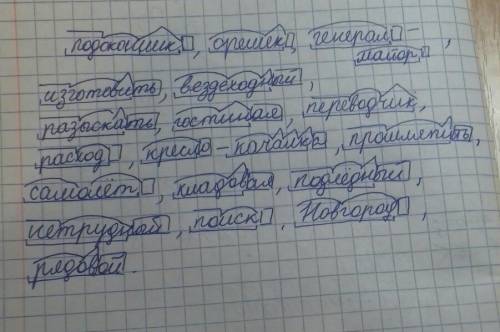 подоконник, орешек, генерал-
майор,
изготовить, вездеходный,
разыскать, гостиная, переводчик,
расход, кресло-качалка, прошмыгнуть,
самолёт, кладовая, подлёдный,
нетрудной, поиск, Новгород,
рядовой.